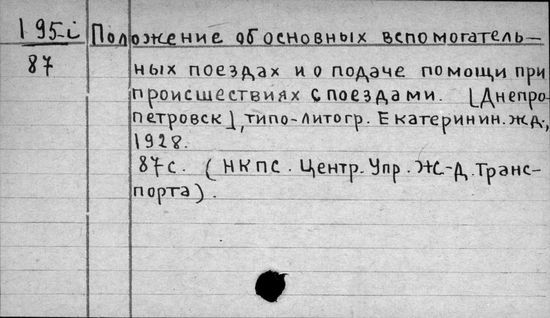 195-i Положение об основных вспомогатель-
87 ных поездах и о подаче помощи при
происшествиях с поездами. [Днепро-
петровск], типо-литогр. Екатеринин. ж.д.,
1928.
87 с. (НКПС. Центр. Упр. Ж.-Д. Транс-
порта).